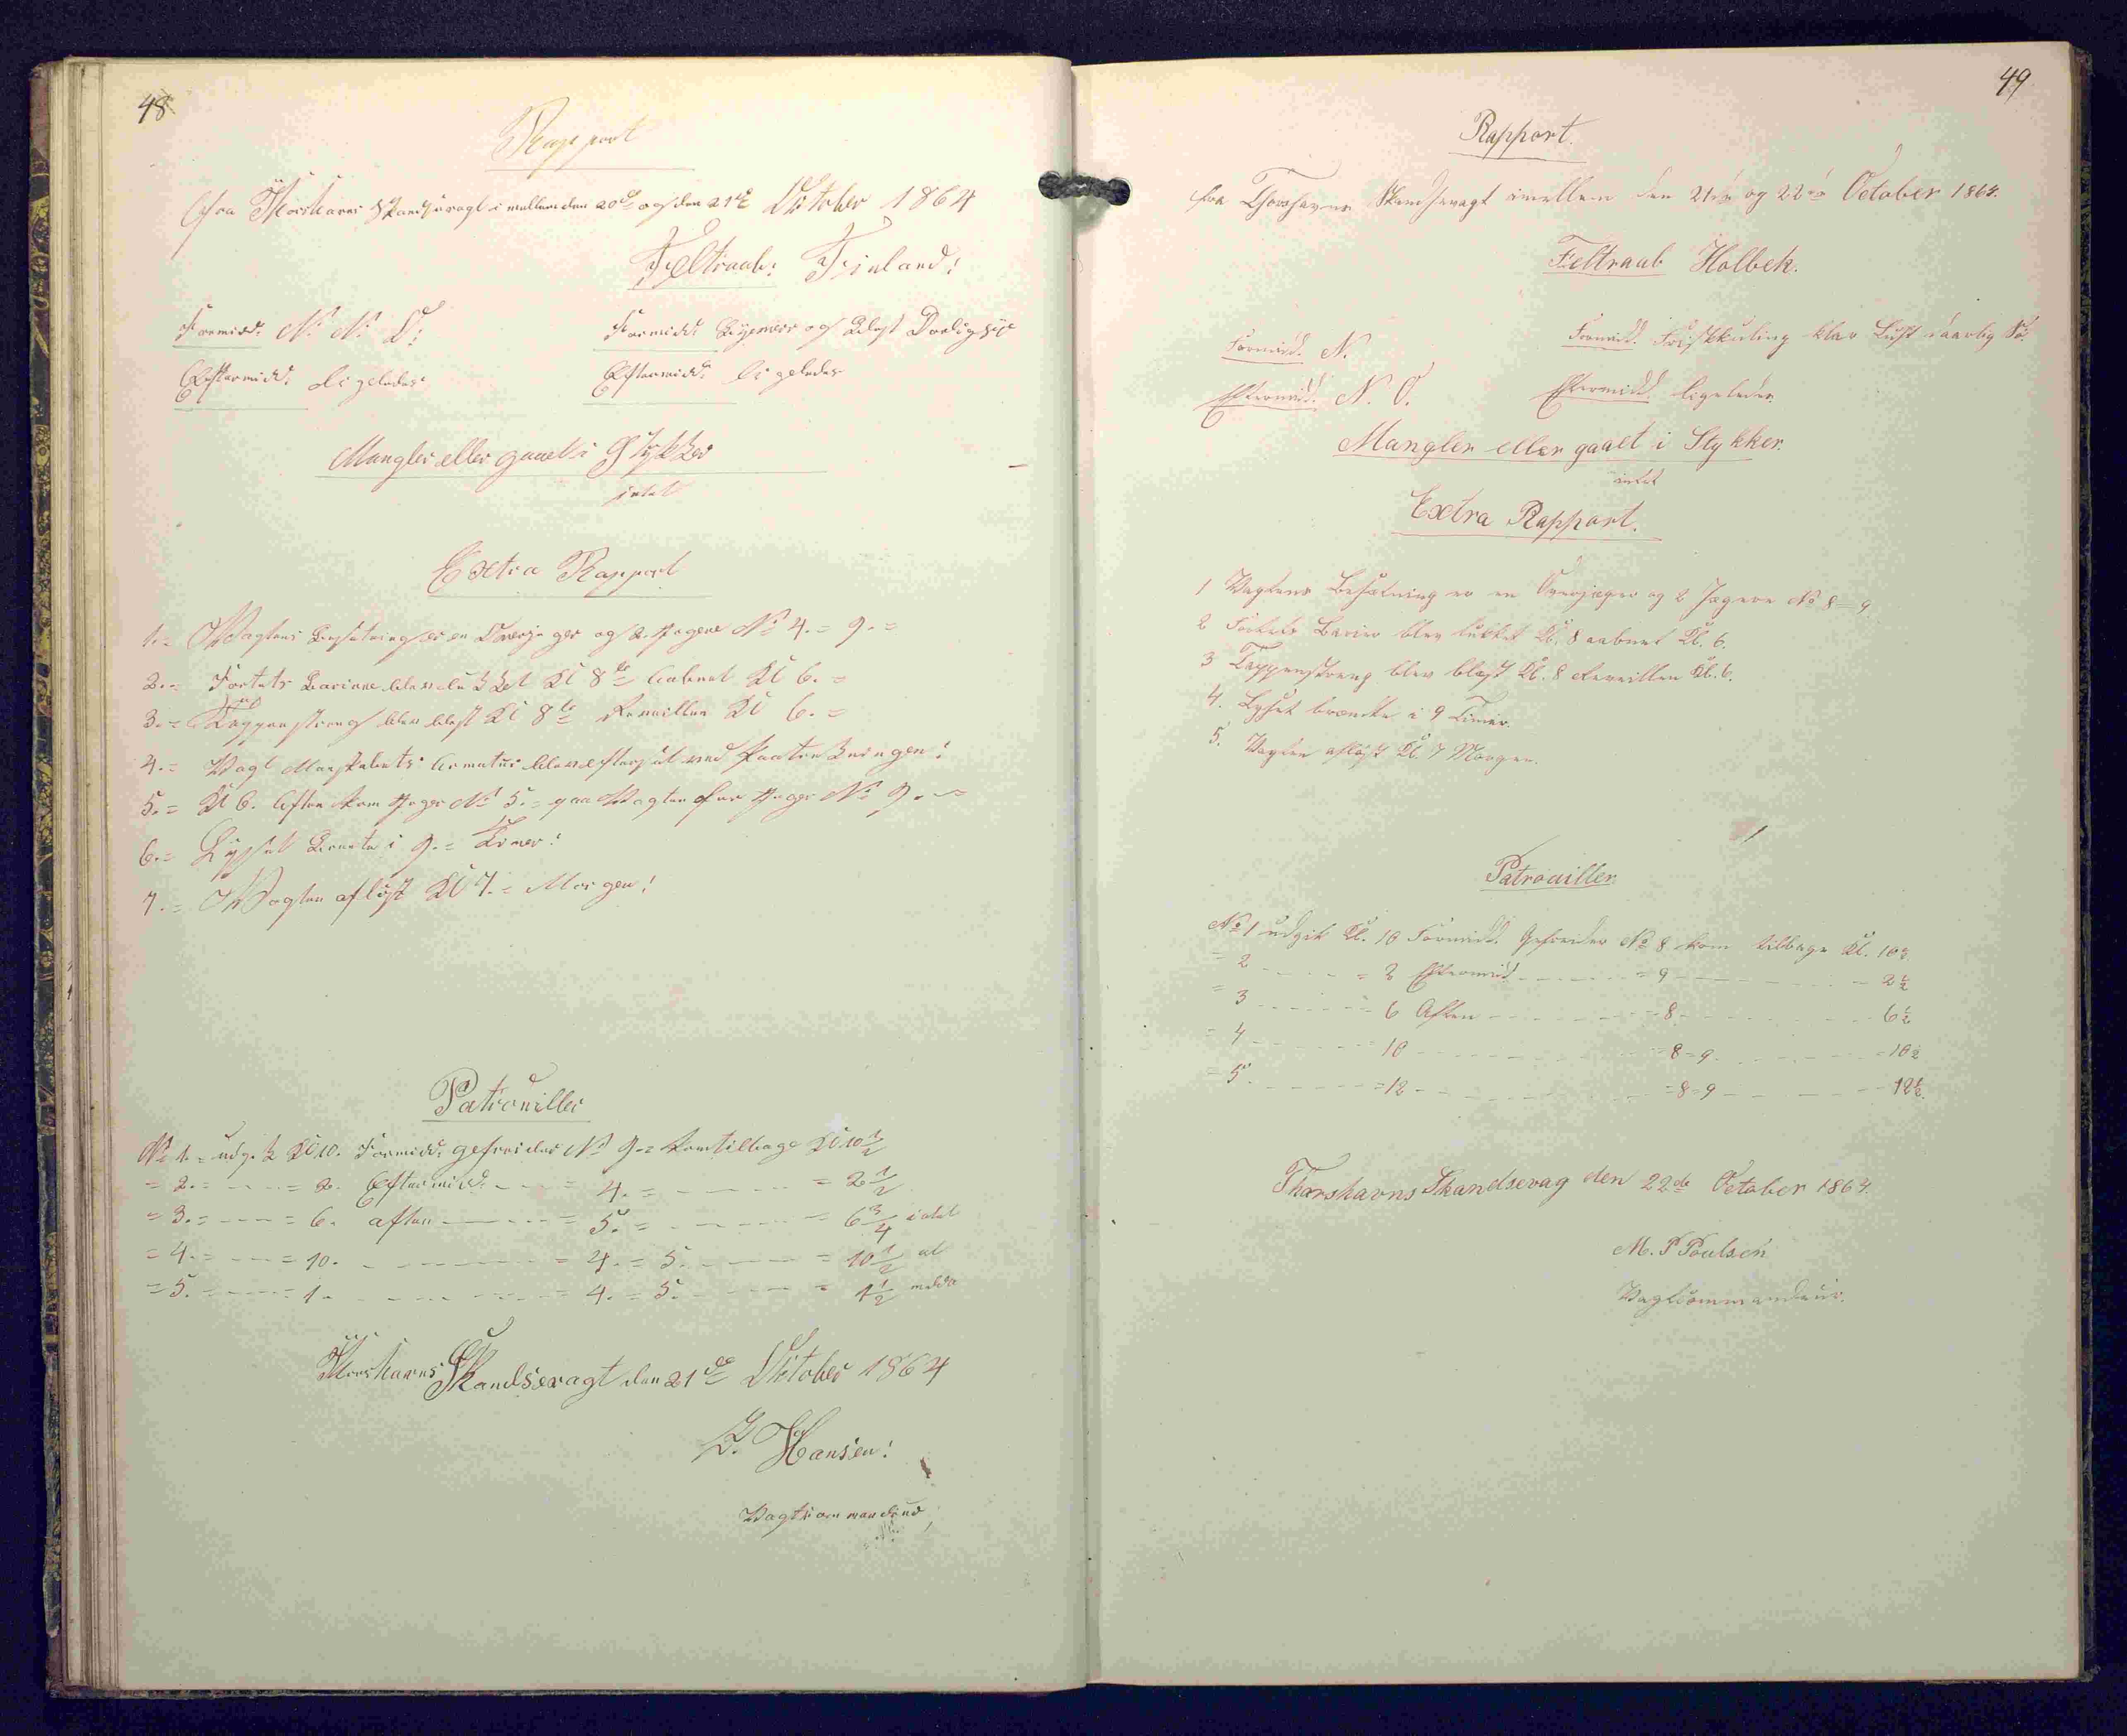 48
Rapport
fra Thorshavns Skandsevagt imellem den 20de og den 21de October 1864
Feltraab: Finland!
Formidd: N. N. O: Formidd: Bygeveir og Blest Daarlig Sye
Eftermidd: ligeledes Eftermidd: ligeledes
Mangler eller gaaet i Stykker
intet
Extra Rapport
1.= Vagtens Besætning er en Overjæger og 2. Jægere No 4.= 9.=
2.= Fortets Bariere blev lukket Kl 8te Aabnet Kl 6.=
3.= Tappenstreng blev blest Kl 8te Reveillen Kl 6.=
4.= Vagt Manskabets Armatur blev efterset ved
5.= Kl 6. Aften kom Jæger No 5.= paa Vagten for Jæger No 9.=
6.= Lyset Brente i 9.= Timer!
7.= Vagten afløst Kl 7.= Morgen!
Patrouiller
No 1.= udgik Kl 10. Formidd: gefreider No 9.= kom tilbage Kl 10 1/2
= 2.= - - - = 2. Eftermidd. - - = 4.= - - - = 2 1/2
= 3.= - - - = 6. aften - - - = 5.= - - - = 6 3/4 intet
= 4.= - - - = 10. - - - = 4.= 5. - - - = 10 1/2 at
= 5. - - - = 1. - - - = 4.= 5. - - - = 1 1/2 melde
Thorshavns Skandsevagt den 21de October 1864
Hansen!
Vagtcommandeur
49
Rapport.
fra Thorshavns Skandsevagt imellem den 21de og 22de October 1864.
Feltraab Holbek.
Formidd. N. Formidd. Friskkuling klar Luft daarlig Sø
Eftermidd. N. O. Eftermidd. ligeledes.
Mangler eller gaaet i Stykker.
intet
Extra Rapport.
1 Vagtens Besætning er en Overjæger og 2 Jægere No 8=9
2 Fortets Barier blev lukket Kl. 8 aabnet Kl. 6.
3 Tappenstreng blev blæst Kl. 8 Reveillen Kl. 6.
4. Lyset brændte i 9 Timer.
5. Vagten afløst Kl. 7 Morgen.
Patrouiller
No 1 udgik Kl. 10 Formidd. Gefreider No 8 kom tilbage Kl. 10½
= 2 - - - = 2 Eftermidd - - - = 9 - - - 2½
= 3 - - - = 6 Aften - - - = 8 - - - 6½
= 4 - - - = 10 - - - = 8=9 - - - = 10½
= 5. - - - = 12 - - - = 8=9 - - - 12½.
Thorshavns Skandsevag den 22de October 1864.
M. P Poulsen
Vagtcommandeur.